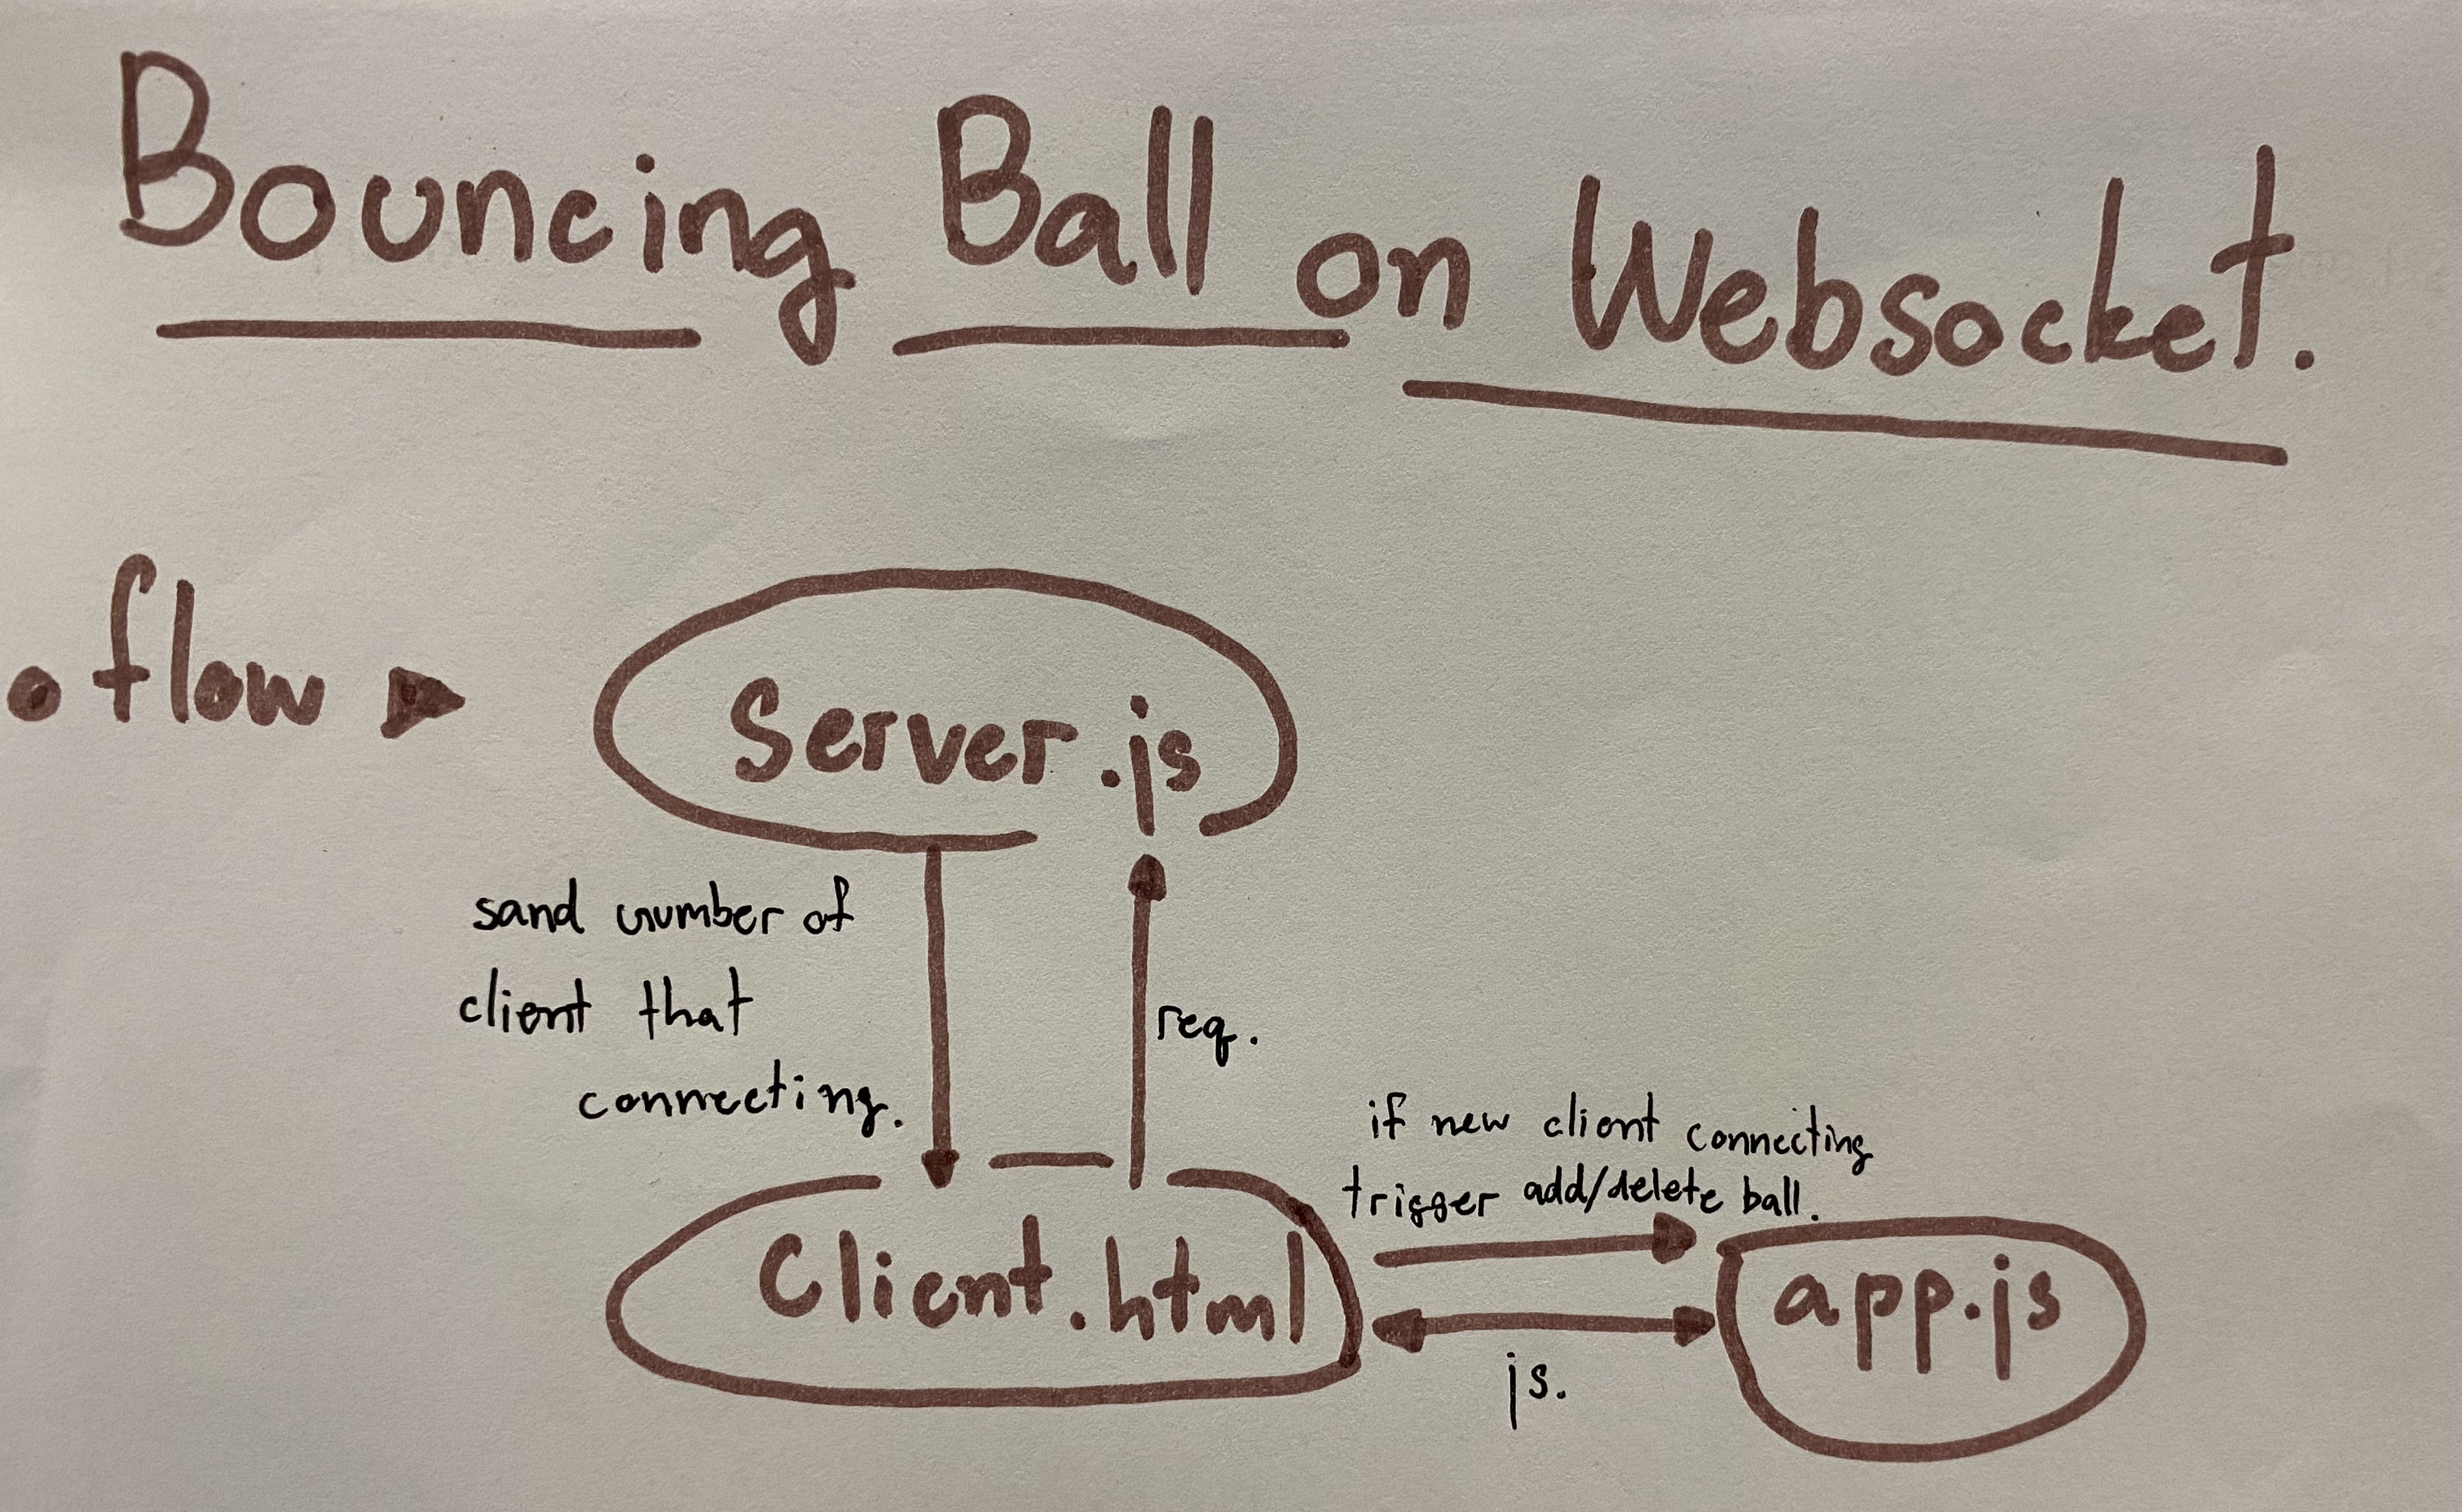 Bouncing Ball on Websocket.
flow
Server.js
sand number of
client that
connecting.
req.
if new client connecting
trigger add/delete ball.
Client.html
app.js
js.